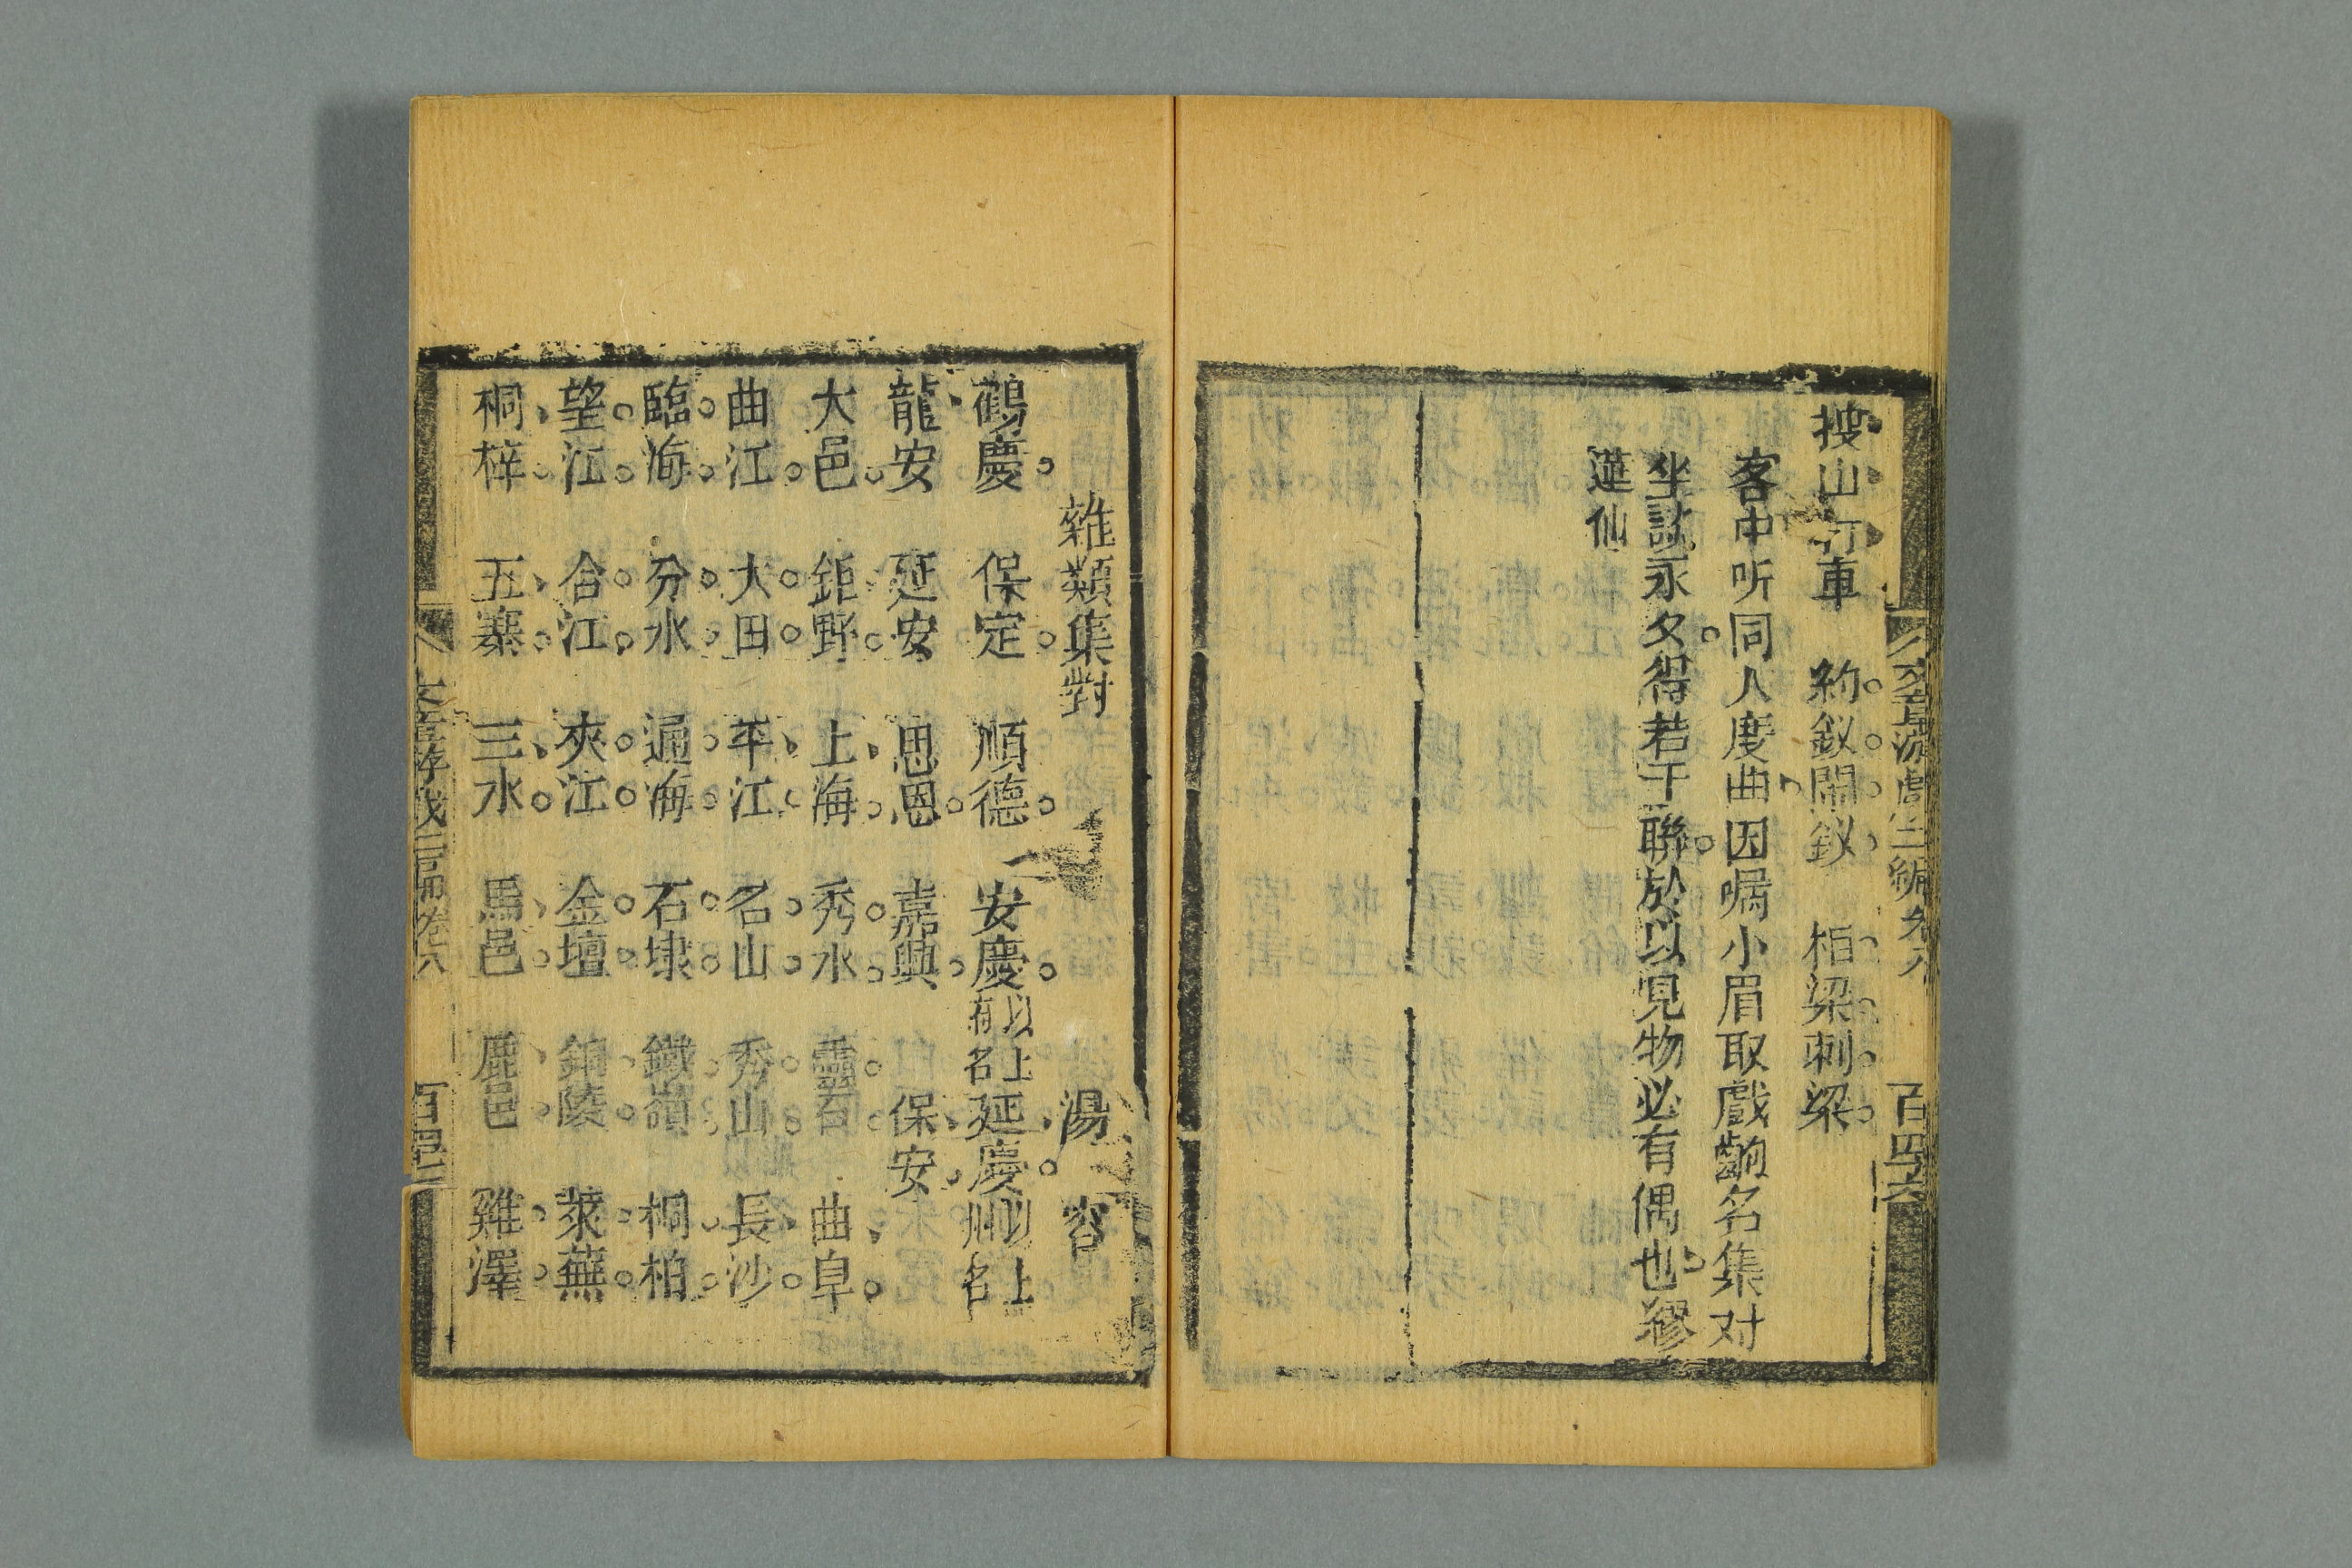 搜山打車　約釵鬧釵　相梁刺梁
客中听同人度曲因嘱小眉取戲齣名集对
坐談永夕得若干聯於以見物必有偶也繆
蓮仙
三編卷八
百四六
雜類集對　湯容
鶴慶　保定　順德　安慶以上府名　延慶以上州名
龍安　延安　思恩　嘉興　保安
大邑　鉅野　上海　秀水　靈石　曲阜
曲江　大田　平江　名山　秀山　長沙
臨海　分水　通海　石埭　鐵嶺　桐柏
望江　合江　夾江　金壇　銅陵　萊蕪
桐梓　五寨　三水　馬邑　鹿邑　雞澤